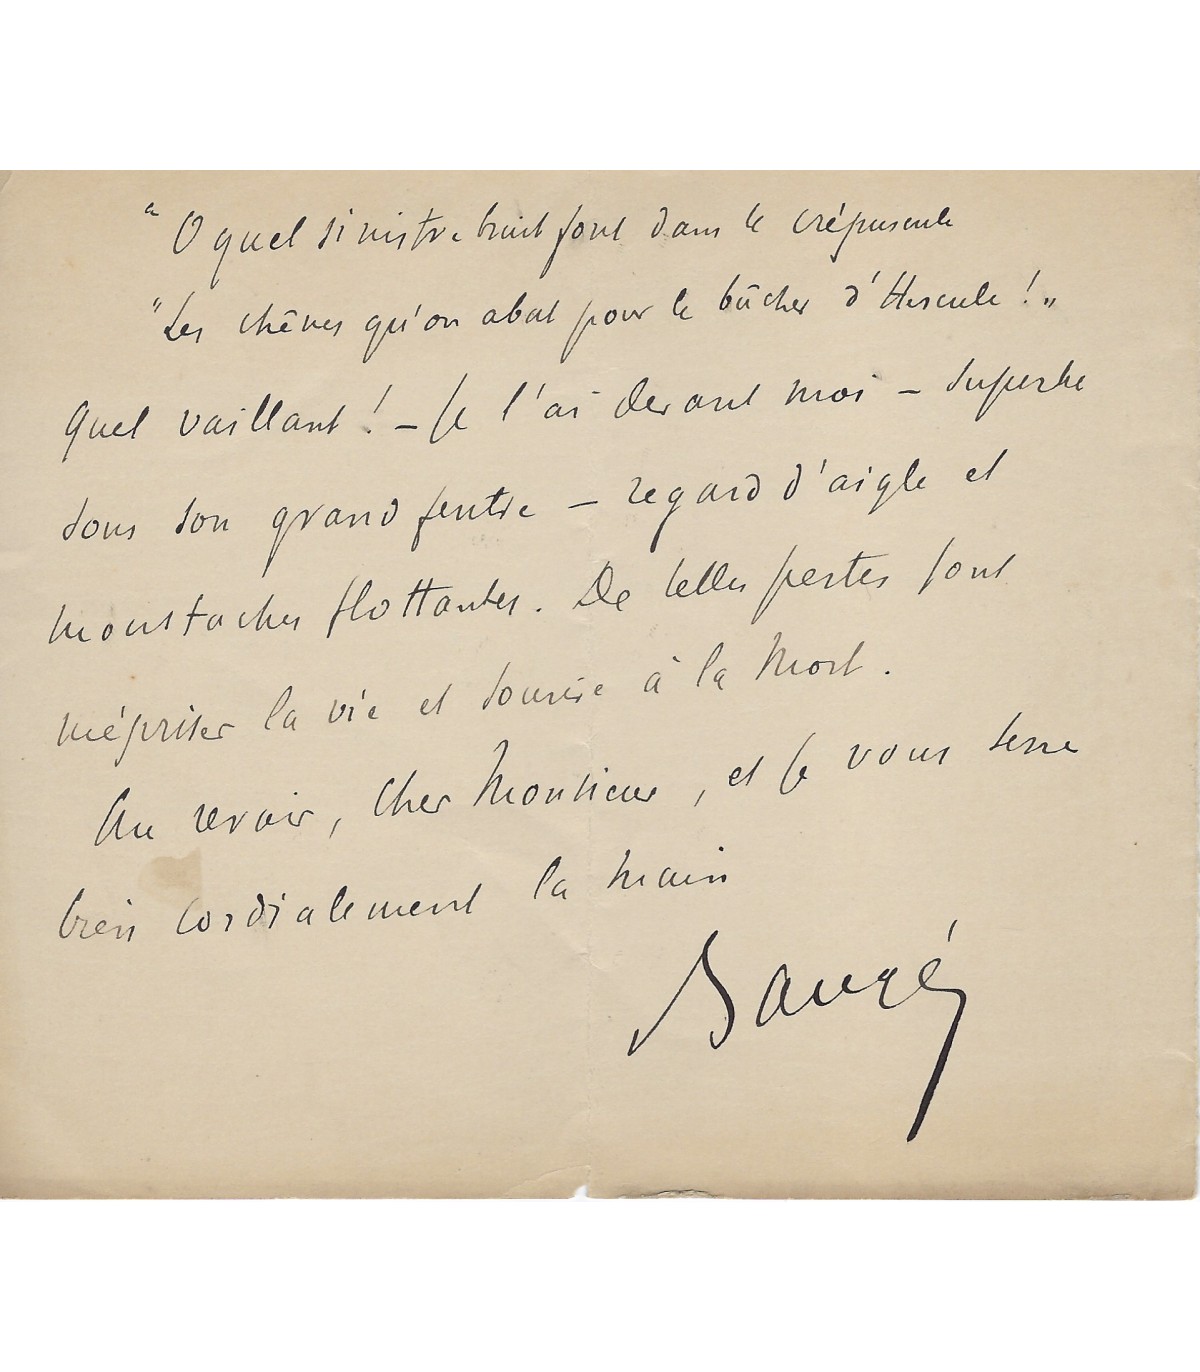 "O quel sinistre bruit font dans le crépuscule
"Les chênes qu'on abat pour le bûcher d'Hercule!"
Quel vaillant! — Je l'ai devant moi — superbe
sous son grand feutre — regard d'aigle et
moustaches flottantes. De telles pertes font
mépriser la vie et sourire à la Mort.
Au revoir, Cher Monsieur, et je vous serre
bien cordialement la main
Baugé